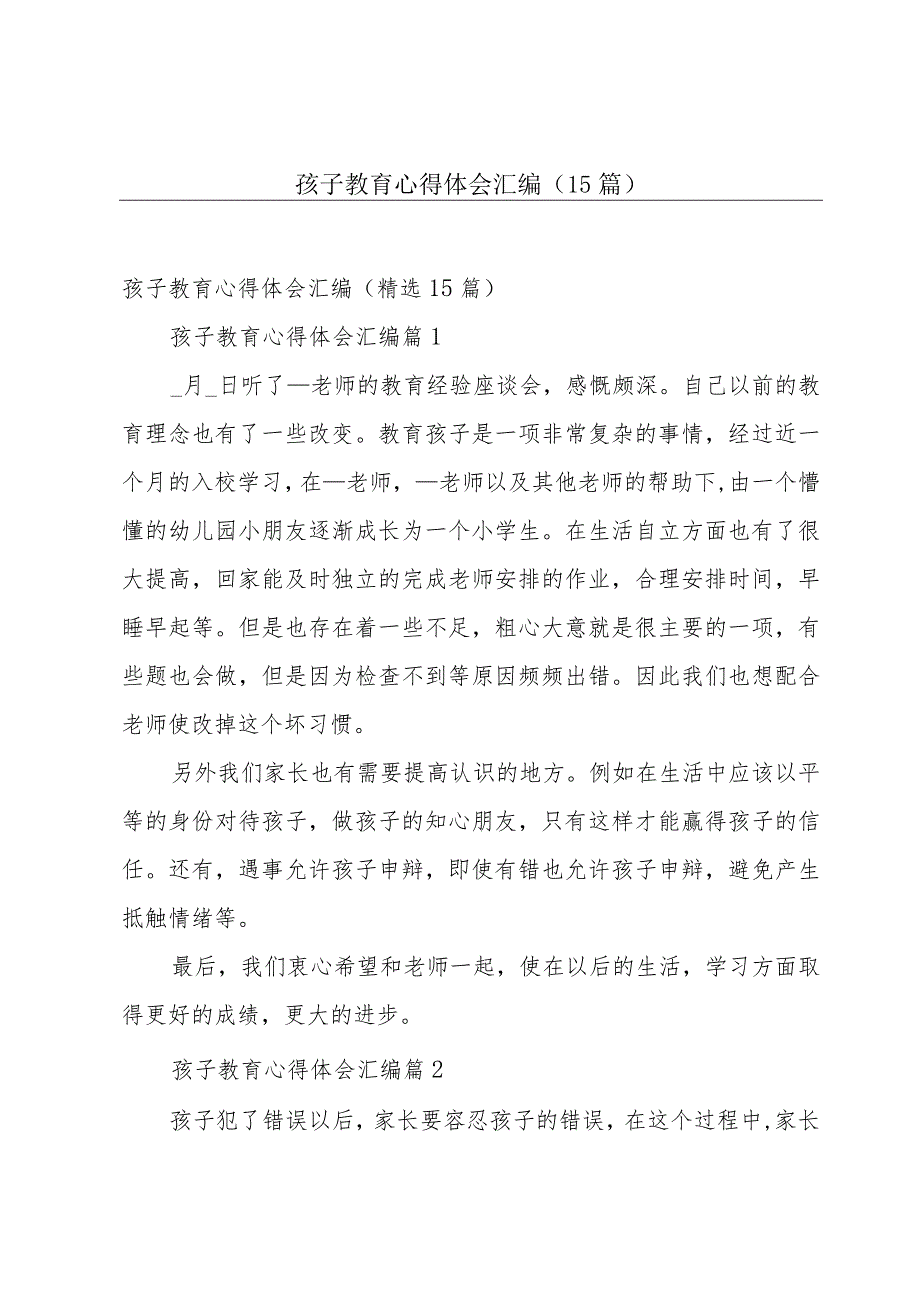 孩子教育心得体会汇编（15 篇）
孩子教育心得体会汇编（精选 15 篇）
孩子教育心得体会汇编篇 1
_月_日听了—老师的教育经验座谈会，感慨颇深。自己以前的教
育理念也有了一些改变。教育孩子是一项非常复杂的事情，经过近一
个月的入校学习,在—老师，—老师以及其他老师的帮助下,由一个懵
懂的幼儿园小朋友逐渐成长为一个小学生。在生活自立方面也有了很
大提高，回家能及时独立的完成老师安排的作业，合理安排时间，早
睡早起等。但是也存在着一些不足，粗心大意就是很主要的一项，有
些题也会做，但是因为检查不到等原因频频出错。因此我们也想配合
老师使改掉这个坏习惯。
另外我们家长也有需要提高认识的地方。例如在生活中应该以平
等的身份对待孩子，做孩子的知心朋友，只有这样才能赢得孩子的信
任。还有，遇事允许孩子申辩，即使有错也允许孩子申辩，避免产生
抵触情绪等。
最后，我们衷心希望和老师一起，使在以后的生活，学习方面取
得更好的成绩，更大的进步。
孩子教育心得体会汇编篇 2
孩子犯了错误以后,家长要容忍孩子的错误，在这个过程中,家长